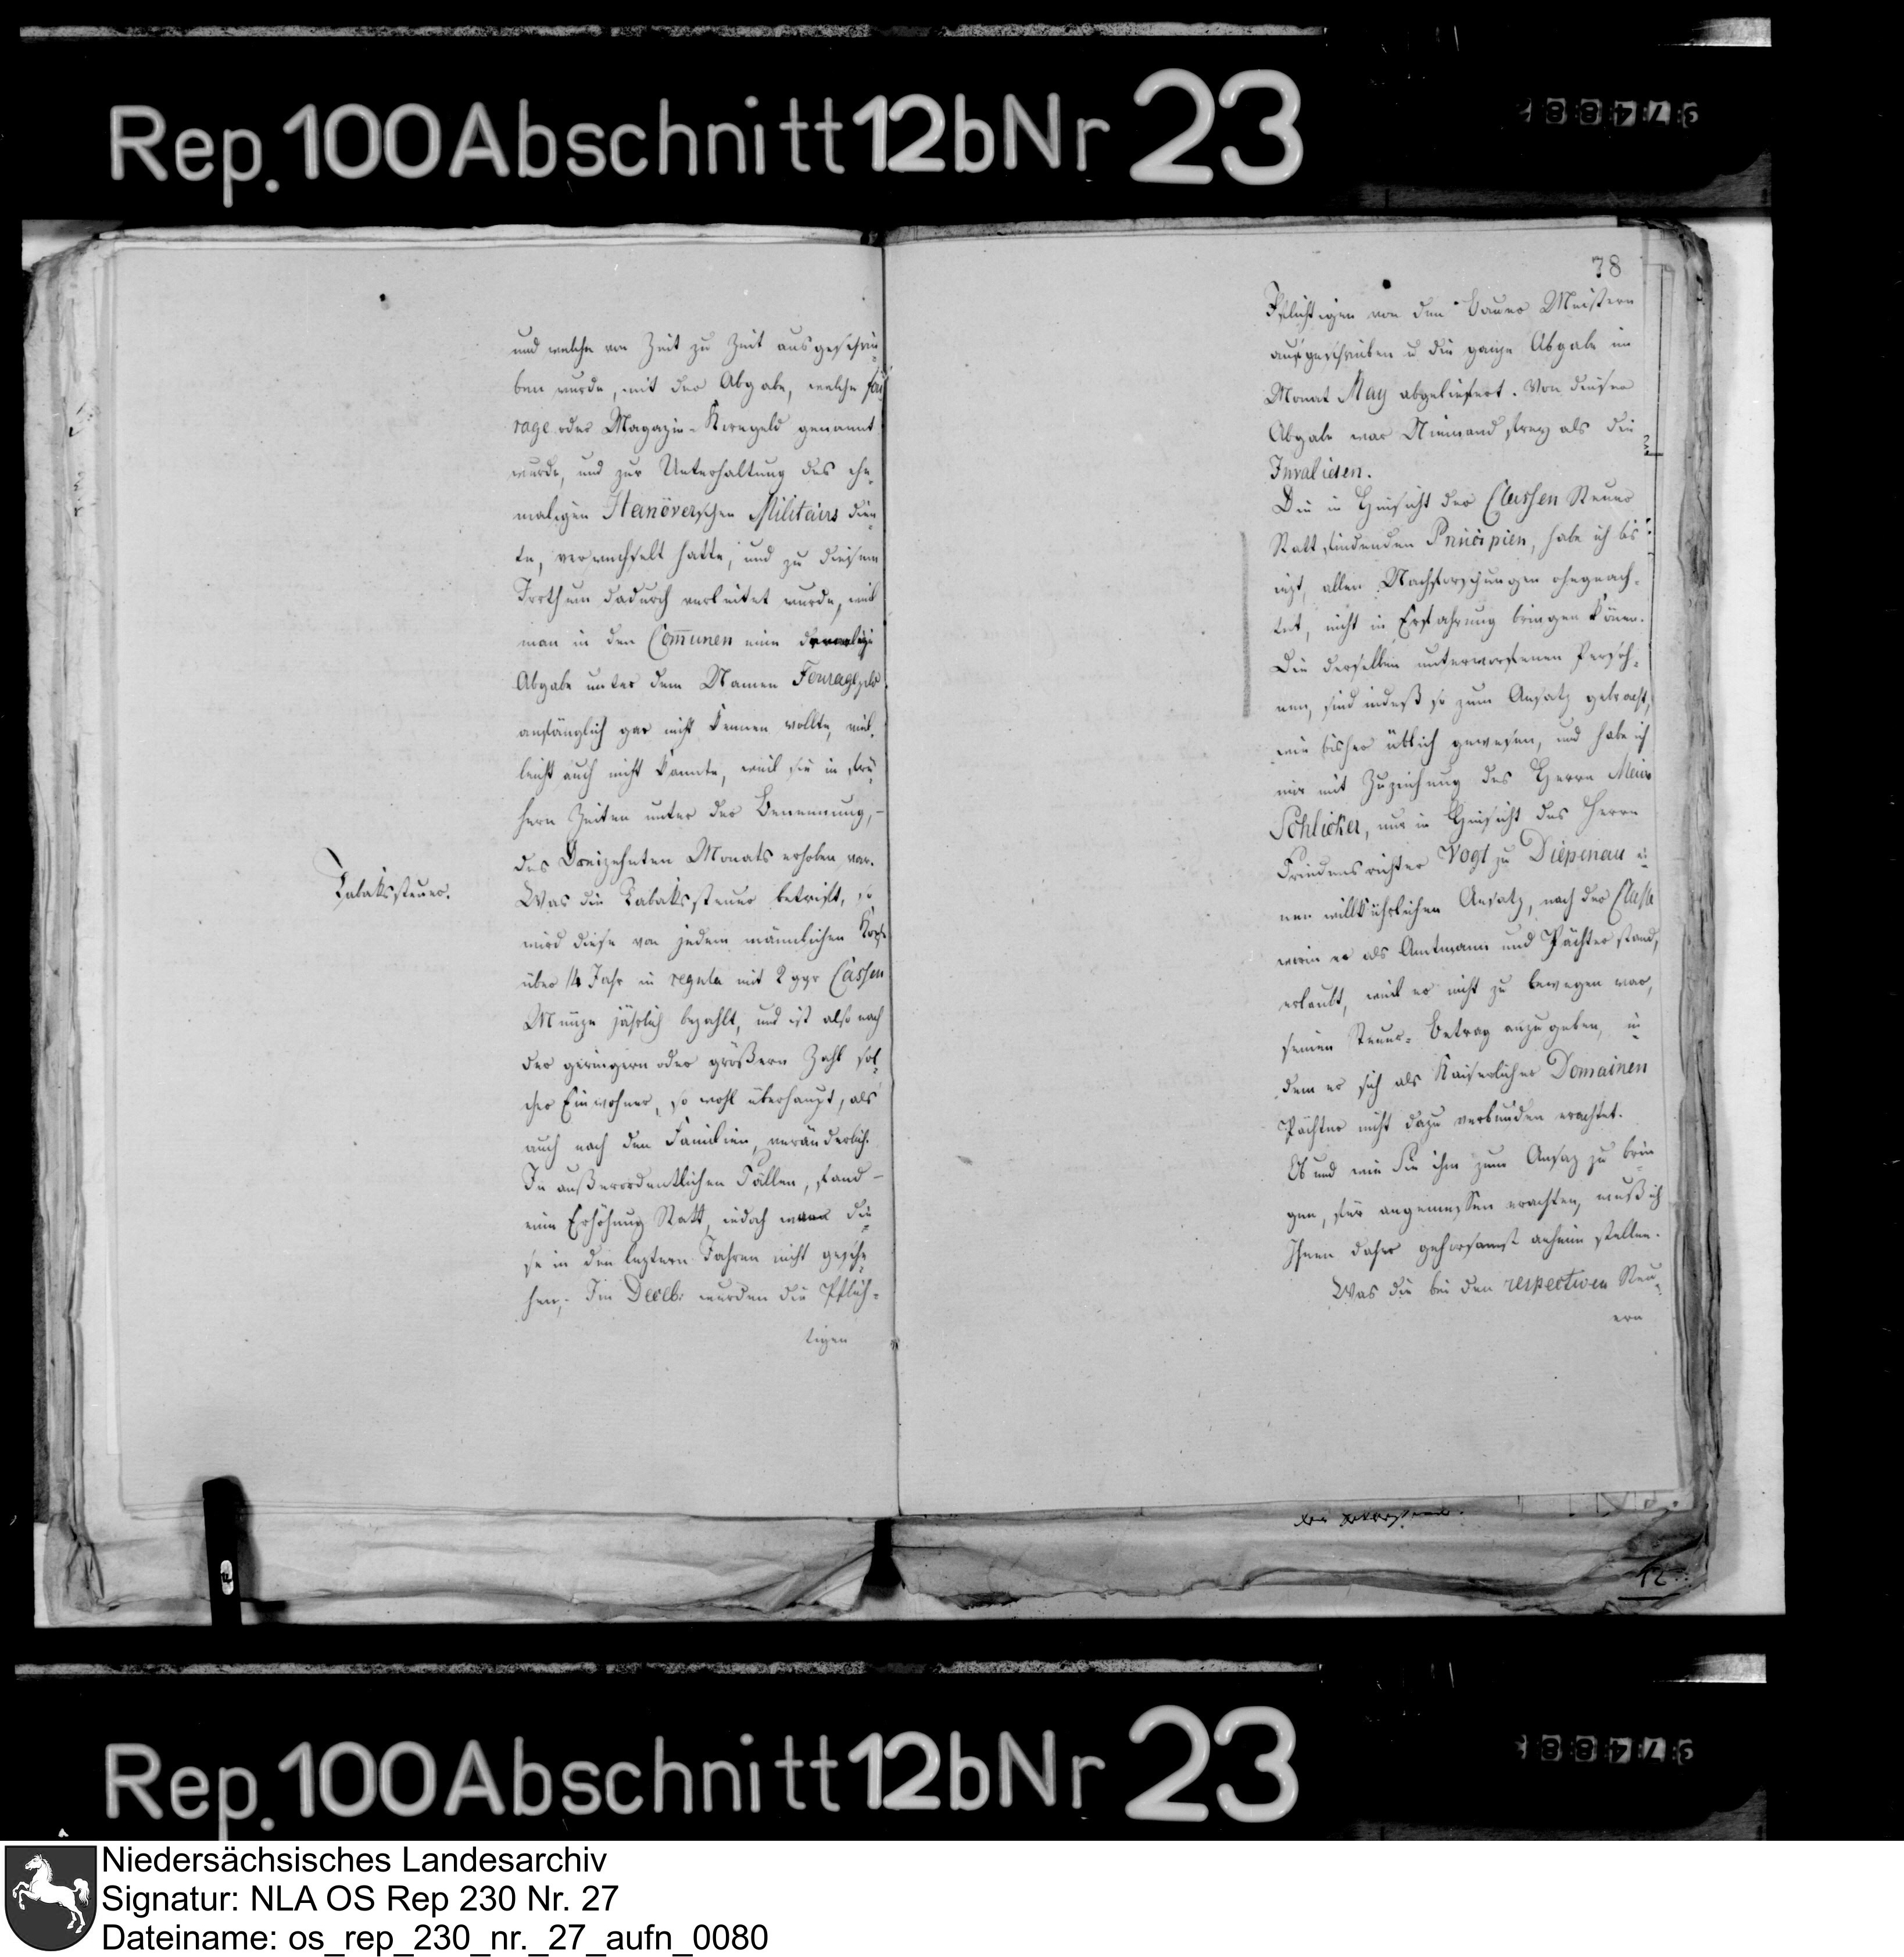 Rep. 100 Abschnitt 12b Nr 23
977488
und welche von Zeit zu Zeit ausgeschrie-
ben wurde, mit der Abgabe, welche fou
rage oder Magazin-Korngeld genannt
wurde, und zur Unterhaltung des ehe-
maligen Hanöverschen Militairs dien-
te, verwechselt hatte, und zu diesem
Irrthum dadurch verleitet wurde, weil
man in den Com̄unen eine dermalige
Abgabe unter dem Namen Fouragegeld
anfänglich gar nicht kennen wollte, viel-
leicht auch nicht kannte, weil sie in frü-
hern Zeiten unter der Benennung, -
des Dreizehnten Monats erhoben war.
Tabakssteuer.
Was die Tabakssteuer betrift, so
wird diese von jedem männlichen Kopfe
über 14 Jahr in regula mit 2 ggr Cassen
Münze jährlich bezahlt, und ist also nach
der geringern oder größern Zahl sol-
cher Einwohner, so wohl überhaupt, als
auch nach den Familien, veränderlich.
In außerordentlichen Fällen, fand -
eine Erhöhung Statt, jedoch war die-
se in den leztern Jahren nicht gesche-
hen,- Im Decbr: wurden die Pflich-
tigen
78
Pflichtigen von den Bauer Meistern
aufgeschrieben u die ganze Abgabe im
Monat May abgeliefert. Von dieser
Abgabe war Niemand frey als die
Invaliden.
Die in Hinsicht der Classen Steuer
Statt findenden Principien, habe ich bis
iezt, allen Nachforschungen ohngeach-
tet, nicht in Erfahrung bringen könen.
Die derselben unterworfenen Persoh-
nen, sind indeß so zum Ansatz gebracht,
wie bisher üblich gewesen, und habe ich
mir mit Zuziehung des Herrn Maire
Schlicker, nur in Hinsicht des Herrn
Friedensrichter Vogt zu Diepenau ei-
nen willkührlichen Ansatz, nach der Classe
worin er als Amtmann und Pächter stand,
erlaubt, weil er nicht zu bewegen war,
seinen Steuer-Betrag anzugeben, in-
dem er sich als Kaiserlicher Domainen
Pächter nicht dazu verbunden erachtet.
Ob und wie Sie ihm zum Ansaz zu brin
gen, für angemessen erachten, muß ich
Ihnen daher gehorsamst anheim stellen.
Was die bei den respectiven Steu-
ern
12
Rep. 100 Abschnitt 12b Nr 23
977488
Niedersächsisches Landesarchiv
Signatur: NLA OS Rep 230 Nr. 27
Dateiname: os_rep_230_nr._27_aufn_0080